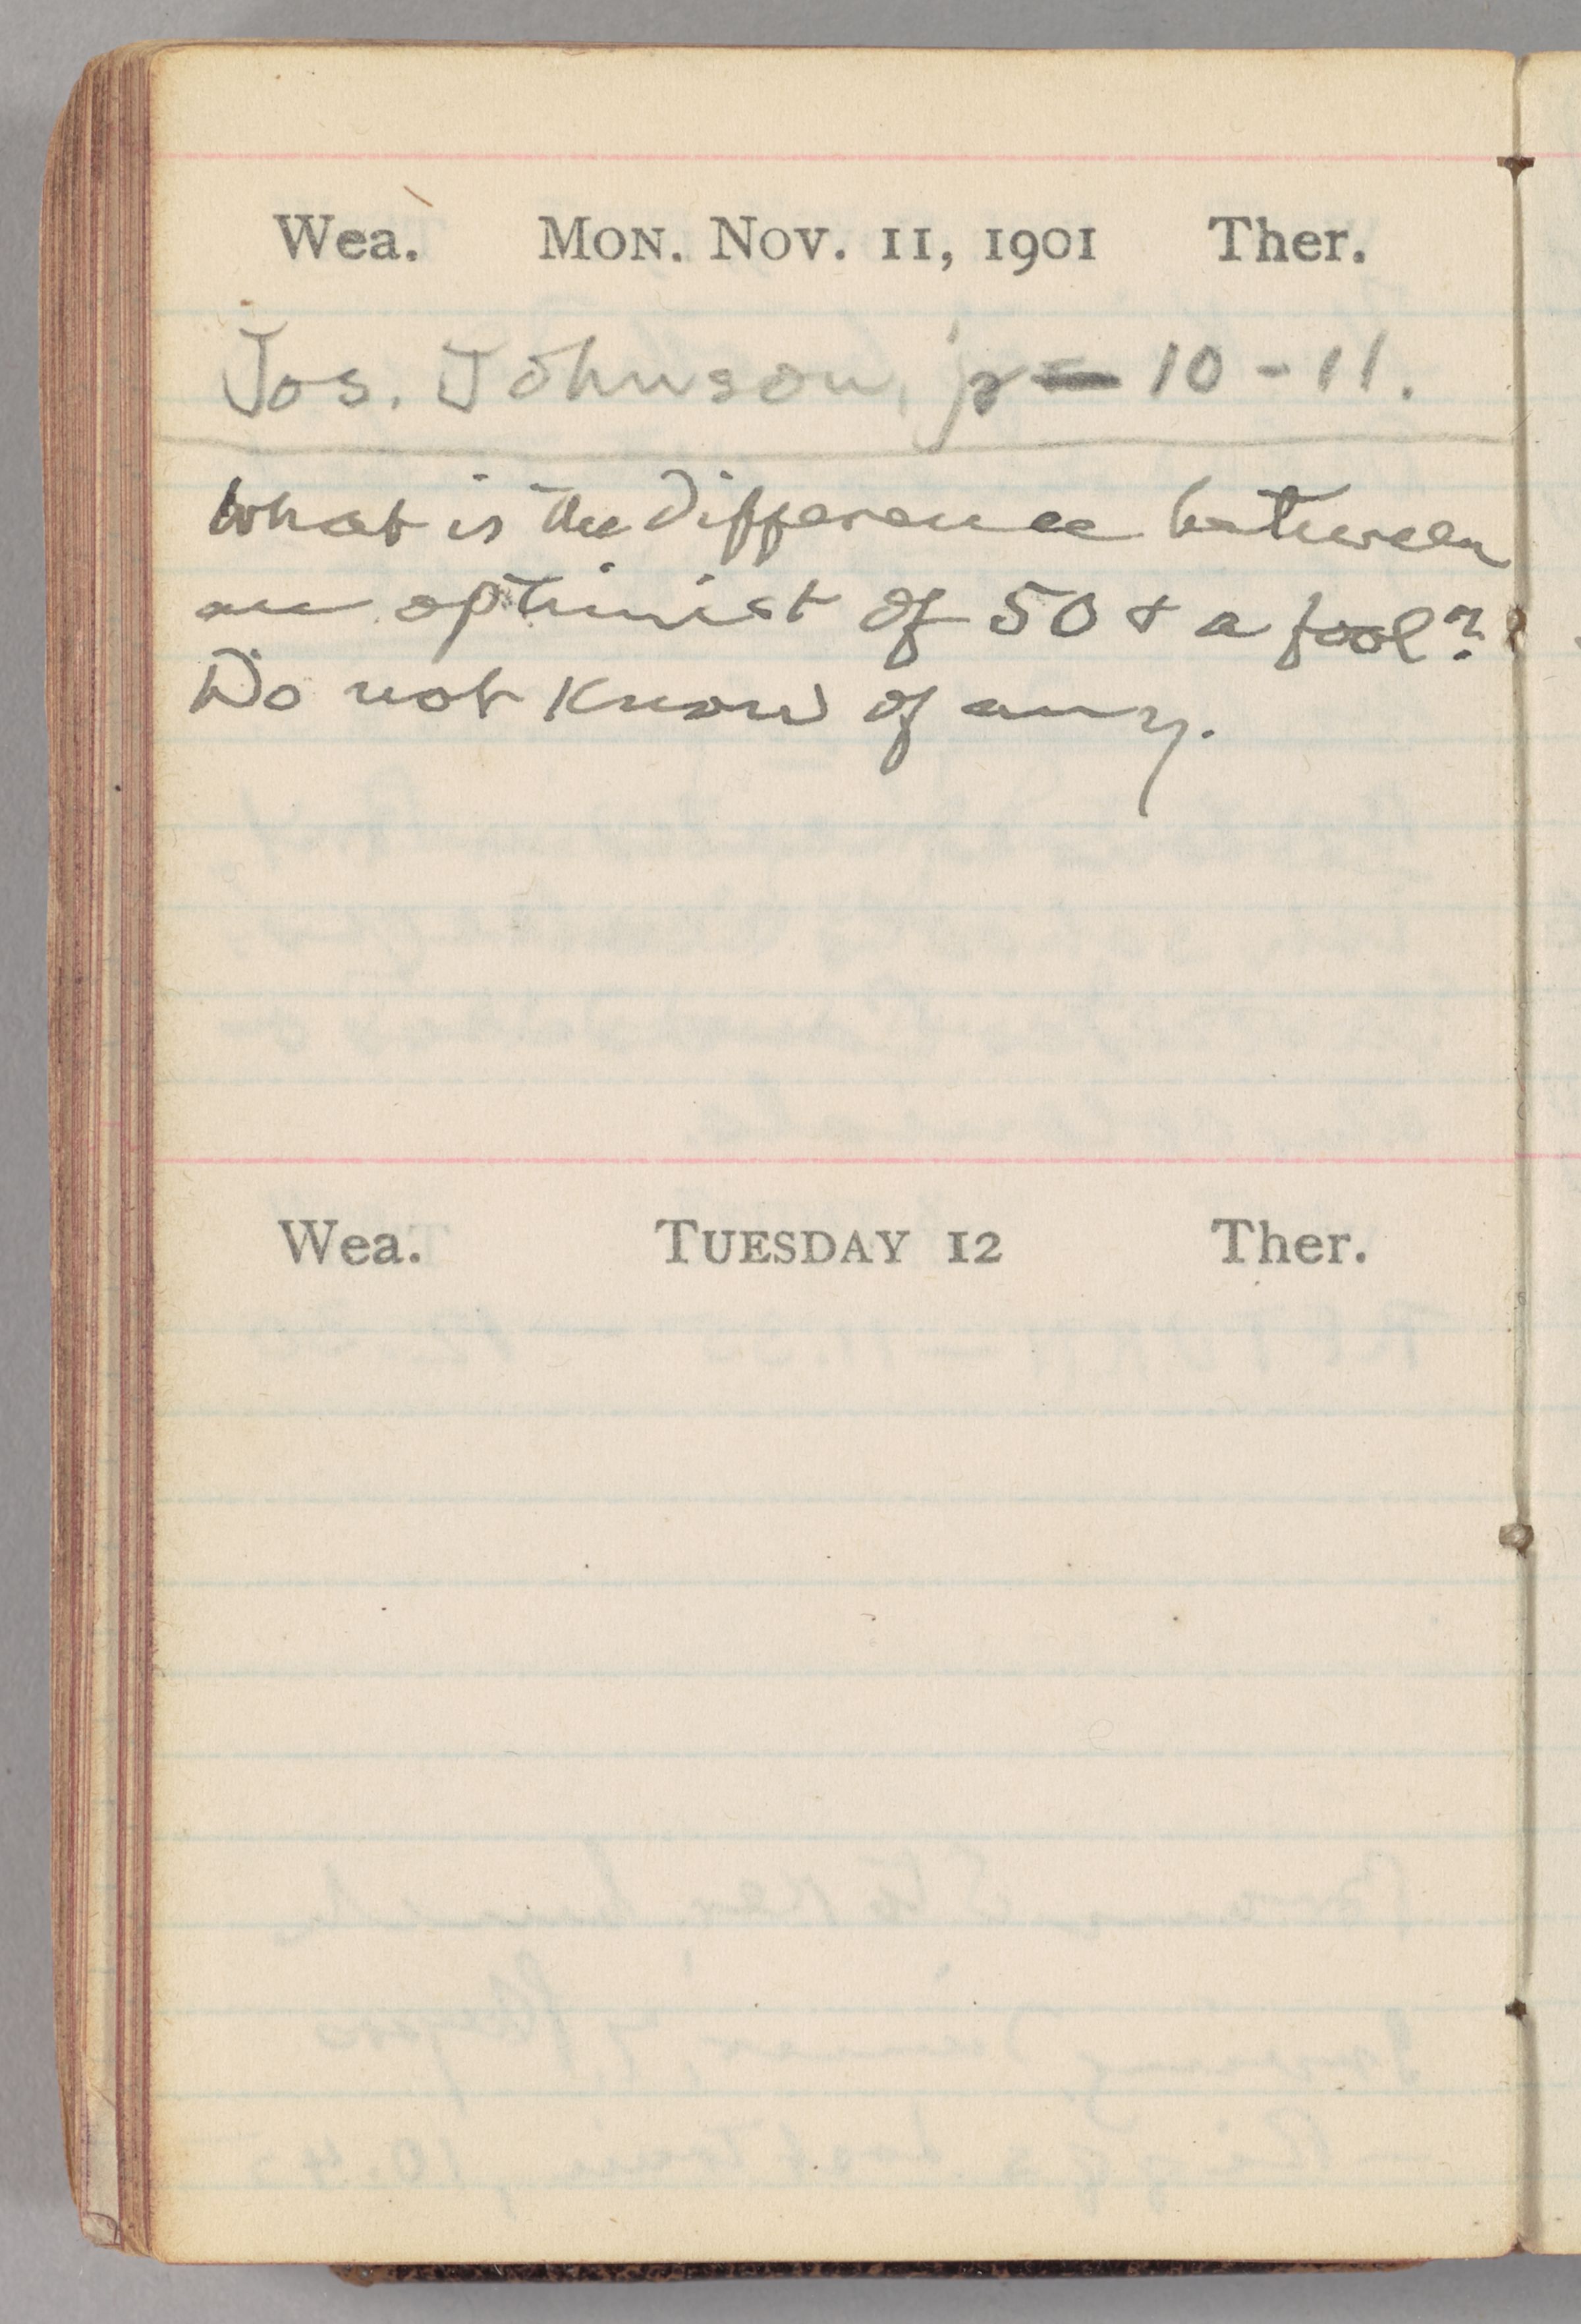 Wea. MON. NOV. 11, 1901 Ther.
Jos. Johnson, jr 10-11.
What is the difference between
an optimist of 50 & a fool?
Do not know of any.
Wea. TUESDAY 12 Ther.